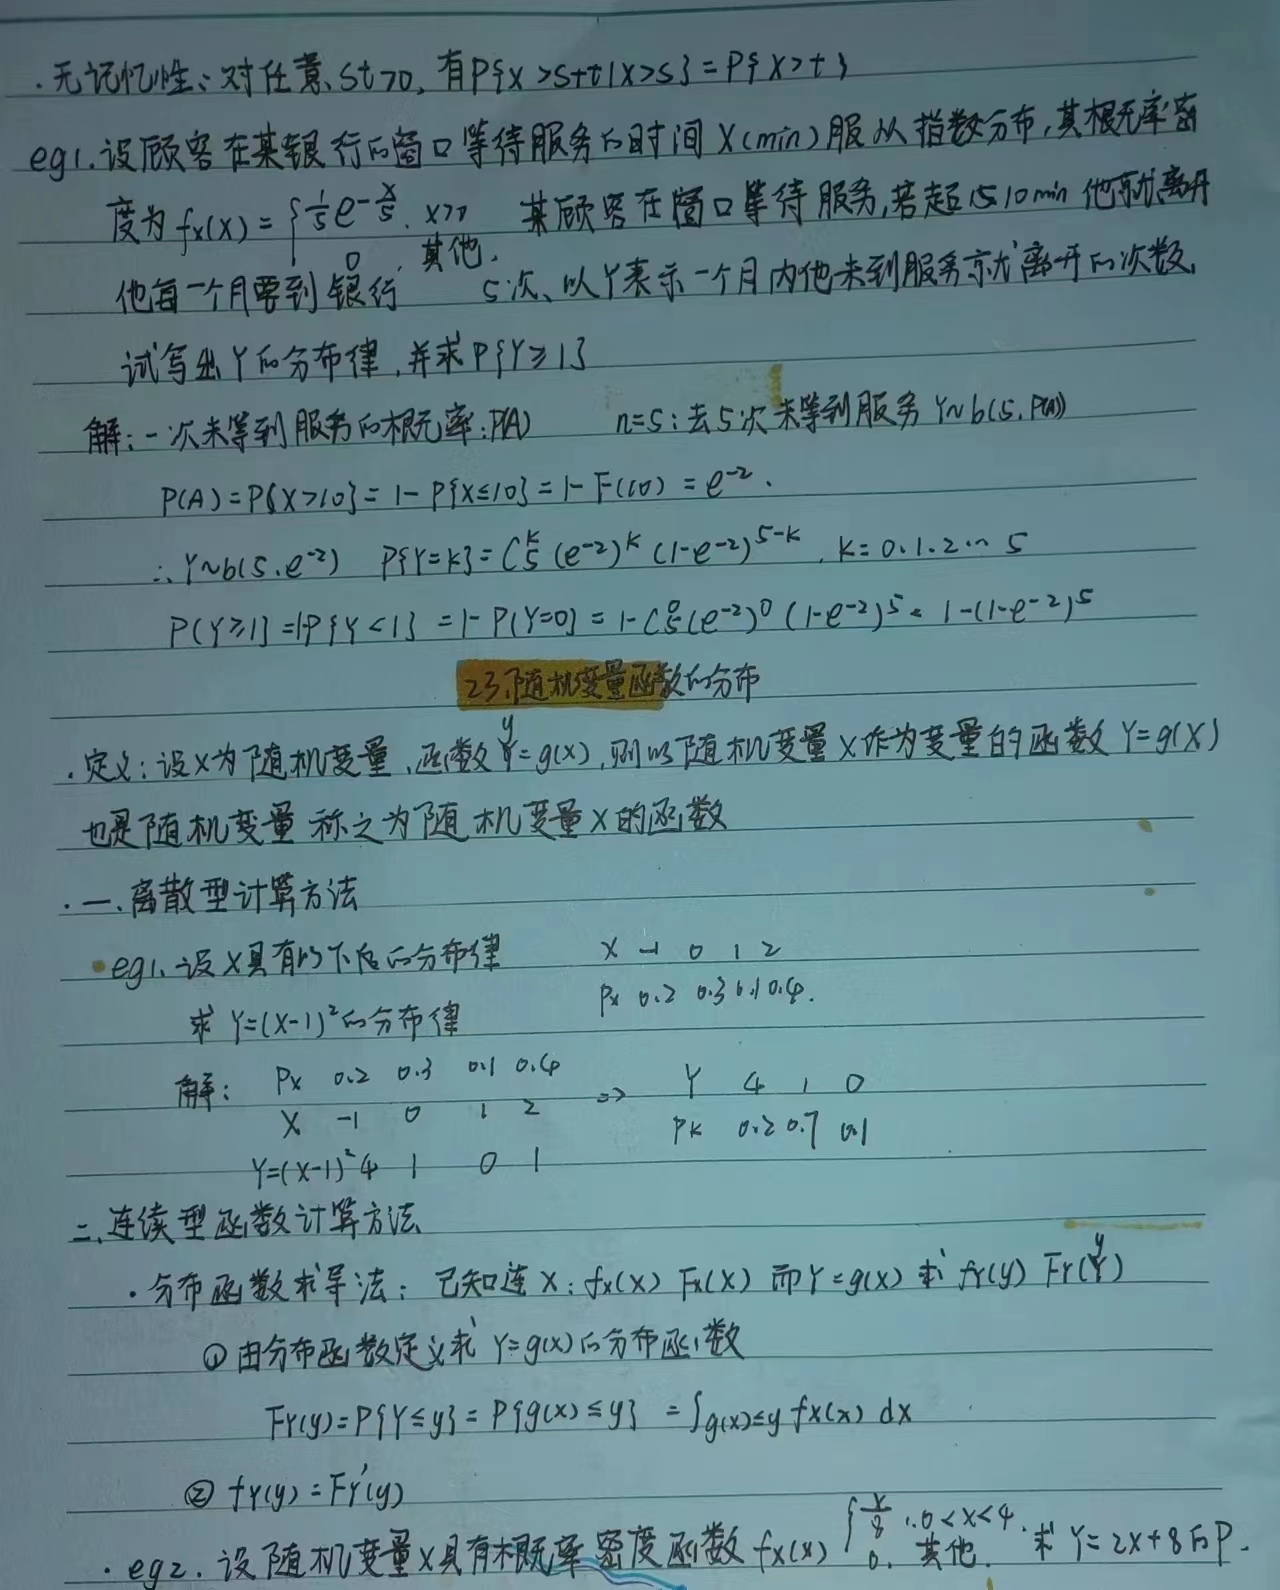 ·无记忆性:对任意、st>0,有P{X>s+t|X>s}=P{X>t}
eg1.设顾客在某银行的窗口等待服务的时间X(min)服从指数分布,其概率密
度为fx(x)={1/5 e^{-x/5}, x>0 某顾客在窗口等待服务,若超过10min他就离开
0, 其他.
他每一个月要到银行 5次、以Y表示一个月内他未到服务就离开的次数,
试写出Y的分布律,并求P{Y≥1}
解:一次未等到服务的概率:P(A) n=5:去5次未等到服务 Y~b(5,P(A))
P(A)=P{X>10}=1-P{X≤10}=1-F(10)=e^{-2}.
∴Y~b(5,e^{-2}) P{Y=k}=C_5^k (e^{-2})^k (1-e^{-2})^{5-k}, k=0.1.2… 5
P(Y≥1}=1-P{Y<1}=1-P(Y=0}=1-C_5^0(e^{-2})^0(1-e^{-2})^5=1-(1-e^{-2})^5
23.随机变量函数的分布
y
·定义:设X为随机变量,函数Y=g(x),则以随机变量X作为变量的函数Y=g(X)
也是随机变量 称之为随机变量X的函数
·一.离散型计算方法
·eg1.设X具有以下的分布律 X -1 0 1 2
Px 0.2 0.3 0.1 0.4.
求Y=(X-1)²的分布律
解: Px 0.2 0.3 0.1 0.4 => Y 4 1 0
X -1 0 1 2 Pk 0.2 0.7 0.1
Y=(X-1)² 4 1 0 1
二.连续型函数计算方法
y
·分布函数求导法:已知连X:fx(x) Fx(X) 而Y=g(x) 求 fY(y) FY(Y)
①由分布函数定义求Y=g(x)的分布函数
FY(y)=P{Y≤y}=P{g(x)≤y}=∫_{g(x)≤y} fx(x) dx
②fY(y)=FY'(y)
·eg2.设随机变量X具有概率密度函数fx(x){x/8, 0<x<4. 求Y=2X+8的P.
0. 其他.